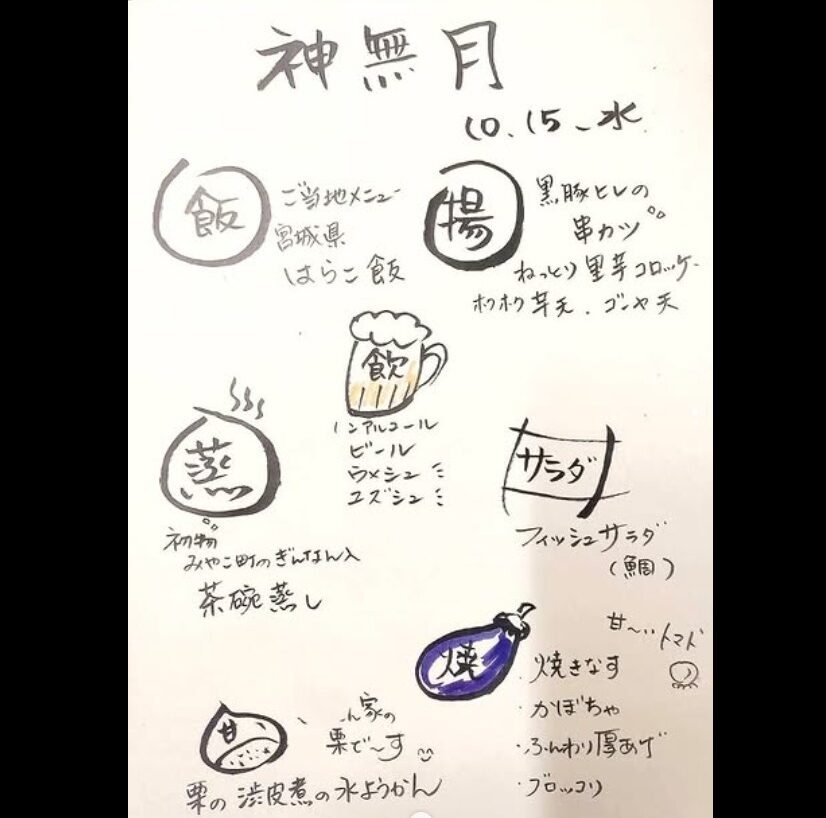 神無月
10.15.水
飯
ご当地メニュー
宮城県
はらこ飯
揚
黒豚ヒレの
串カツ
ねっとり里芋コロッケ
ホクホク芋天、ゴーヤ天
飲
ノンアルコール
ビール
ウメシュ
ユズシュ
蒸
初物
みやこ町のぎんなん入
茶碗蒸し
サラダ
フィッシュサラダ
(鯛)
焼
甘〜いトマト
・焼きなす
・かぼちゃ
・ふんわり厚あげ
・ブロッコリ
甘
ん家の
栗で〜す
栗の渋皮煮の水ようかん